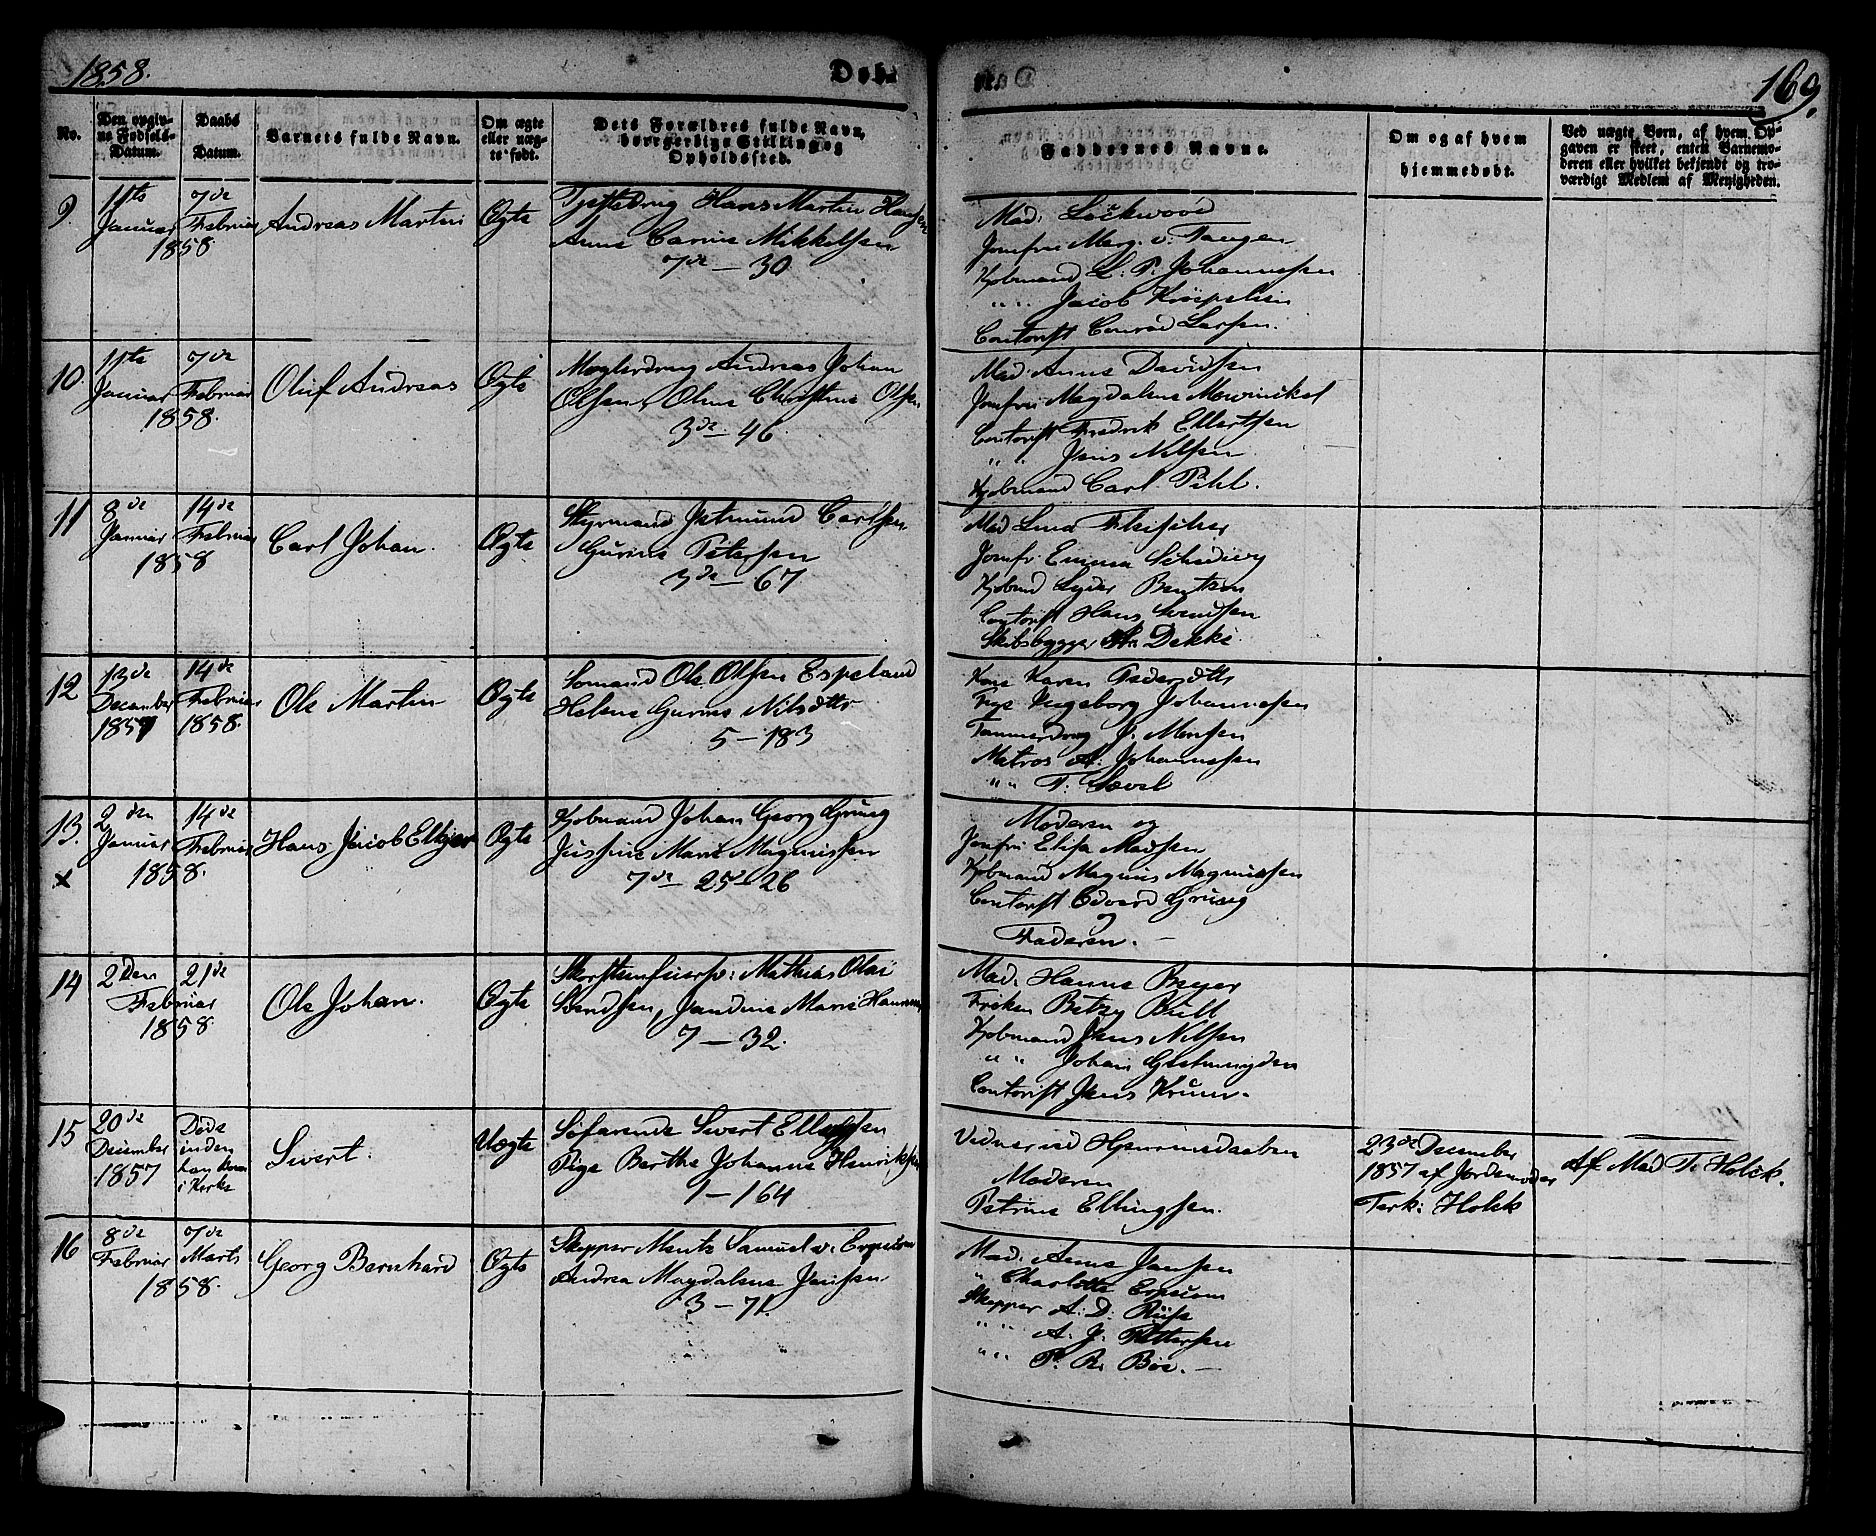 1858.
Døb
169.
No.
Den opgiv-
ne Fødsels-
Datum.
Daabs
Datum.
Barnets fulde Navn.
Om ægte
eller uæg-
te født.
Dets Forældres fulde Navn,
borgerlige Stilling og
Opholdssted.
Faddernes Navne.
Om og af hvem
hjemmedøbt.
Ved uægte Børn, af hvem Op-
gaven er skeet, enten Barnemo-
deren eller hvilket bekjendt og tro-
værdigt Medlem af Menigheden.
9.
11te
Januar
7de
Februar
1858
Andreas Martin
Ægte
Hans Martin Hansen
Anne Carine Mikkelsen
7de — 30
Mad: Lockwood
Jomfru Marg. v. Tangen
Kjøbmand L. P. Johannessen
" " Jacob Kröepelien
Contorist Conrad Larsen.
10.
11te
Januar
7de
Februar
1858.
Oluf Andreas
Ægte
Møglerdreng Andreas Johan
Olsen, Oline Christine Olsen
3de 46
Mad: Anne Davidsen
Jomfru Magdalene Mowinckel
Contorist Fredrik Ellertsen
" " Jens Nilsen
Kjøbmand Carl Pihl.
11
8de
Januar
14de
Februar
1858
Carl Johan.
Ægte
Styrmand Jetmund Carlsen
Gurine Petersen
3de — 67
Mad Lina Fleischer
Jomfr: Emma
Kjøbmd Lyder Bentzon
Contorist Hans Svendsen
Skibsbygger Dekke
12
13de
December
1857
14de
Februar
1858.
Ole Martin
Ægte
Sømand Ole Olsen Espeland
Helene Gurine Nilsdttr
5 — 183
Kone Karen Pedersdttr
Pige Ingeborg Johannessen
Tømmerdreng J. Monsen
Matros A. Johannessen
" " T. Sævel
13.
x
2den
Januar
14de
Februar
1858.
Hans Jacob Elkjær
Ægte
Kjøbmand Johan Georg Grung
Jussine Marie Magnussen
7de 25–26
Moderen og
Jomfru Elisa Madsen
Kjøbmand Magnus Magnussen
Contorist Edvard Grung
og
Faderen. —
14
2den
21de
Februar
1858.
Ole Johan.
Ægte
Skorstensfeiersv: Mathias Olai
Bendsen, Jandine Marie Hammer
7 — 32.
Mad: Hanne Beyer
Frøken Betzy Bull
Kjøbmand Jens Nilsen
" " Johan Gelmuyden
Contorist Jens Kruer.
15
20de
December
1857
Døde
inden
kom
i Kirke
Sivert.
Uægte
Søfarende Sivert Ellingsen
Pige Berthe Johanne Henriksen
1 — 164
Vidner ved Hjemmedaaben
Moderen
Petrine Ellingsen.
23de December
1857 af Jordemoder
Terk: Holck
Af Mad T. Holck.
16
8de
Februar
7de
Marts
1858.
Georg Bernhard
Ægte
Skipper Mentz Samuel v. Erpecom
Andrea Magdalene Jansen
3 — 71.
Mad: Anne Jansen
" Charlotte Erpecom
Skipper A. D. Riise
" " A. J. Pettersen
" " P. R. Bøe. —